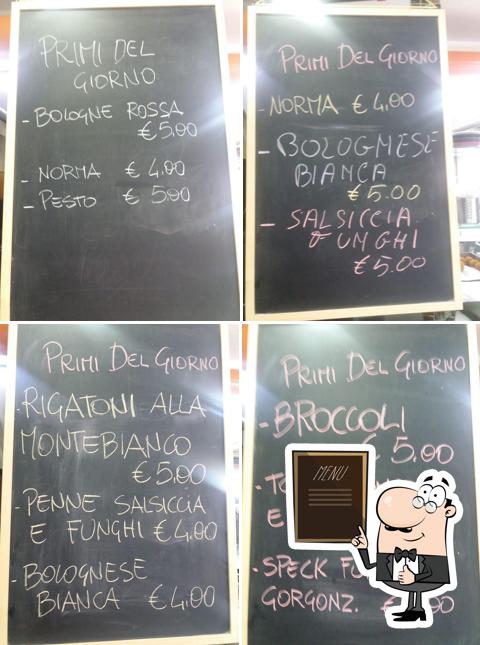 PRIMI DEL
GIORNO
- BOLOGNE ROSSA
€ 5,00
- NORMA € 4.00
- PESTO € 5,00
PRIMI DEL GIORNO
- NORMA € 4,00
- BOLOGNESE
BIANCA
€ 5.00
- SALSICCIA
FUNGHI
€ 5.00
PRIMI DEL GIORNO
- RIGATONI ALLA
MONTEBIANCO
€ 5,00
- PENNE SALSICCIA
E FUNGHI € 4,00
- BOLOGNESE
BIANCA € 4,00
PRIMI DEL GIORNO
- BROCCOLI
€ 5.00
E
- SPECK
GORGONZ.
MENU